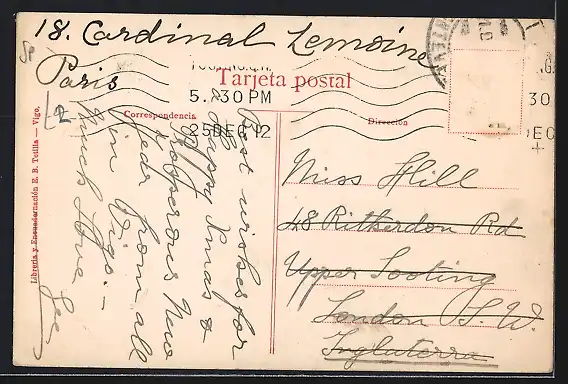 18. Cardinal Lemoine
Paris
Tarjeta postal
5.30 PM
25 DEC 12
Correspondencia
Dirección
Best wishes for
a Happy Xmas &
Prosperous New
Year from all
in Vigo. -
Much love
Miss Hill
48 Ritherdon Rd
Upper Tooting
London S.W.
Inglaterra
Librería y Encuadernación E. B. Tetilla — Vigo.
30
DEC